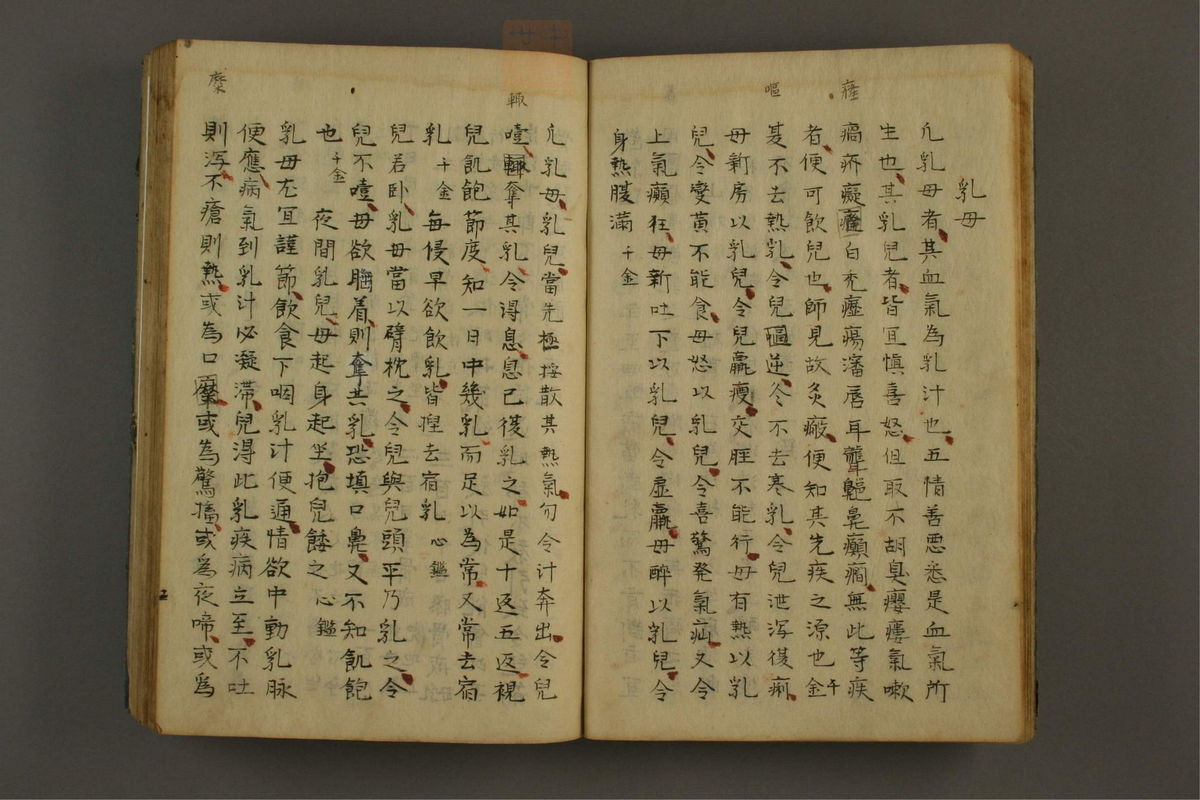 癨
嘔
乳母
凡乳母者其血氣為乳汁也五情善悪悉是血氣所
生也其乳兒者皆宜慎喜怒但取不胡臭癭瘻氣嗽
瘑疥癡癨白禿癧瘍瀋唇耳聾鼻癲癇無此等疾
者便可飲兒也師見故灸瘢便知其先疾之源也千金
夏不去熱乳令兒嘔逆冬不去寒乳令兒泄瀉後痢
母新房以乳兒令兒羸瘦交脛不能行母有熱以乳
兒令變黄不能食母怒以乳兒令喜驚発氣疝又令
上氣癲狂母新吐下以乳兒令虚羸母醉以乳兒令
身熱腹滿千金
輙
糜
凡乳母乳兒當先極按散其熱氣勿令汁奔出令兒
噎輙奪其乳令得息息已後乳之如是十返五返視
兒飢飽節度知一日中幾乳而足以為常又常去宿
乳千金 每侵早欲飲乳皆捏去宿乳心鑑
兒若卧乳母當以臂枕之令兒與兒頭平乃乳之令
兒不噎母欲睡着則奪其乳恐填口鼻又不知飢飽
也千金 夜間乳兒母起身起坐抱兒餧之心鑑
乳母尤宜謹節飲食下咽乳汁便通情欲中動乳脉
便應病氣到乳汁必凝滞兒得此乳疾病立至不吐
則瀉不瘡則熱或為口糜或為驚搐或為夜啼或為